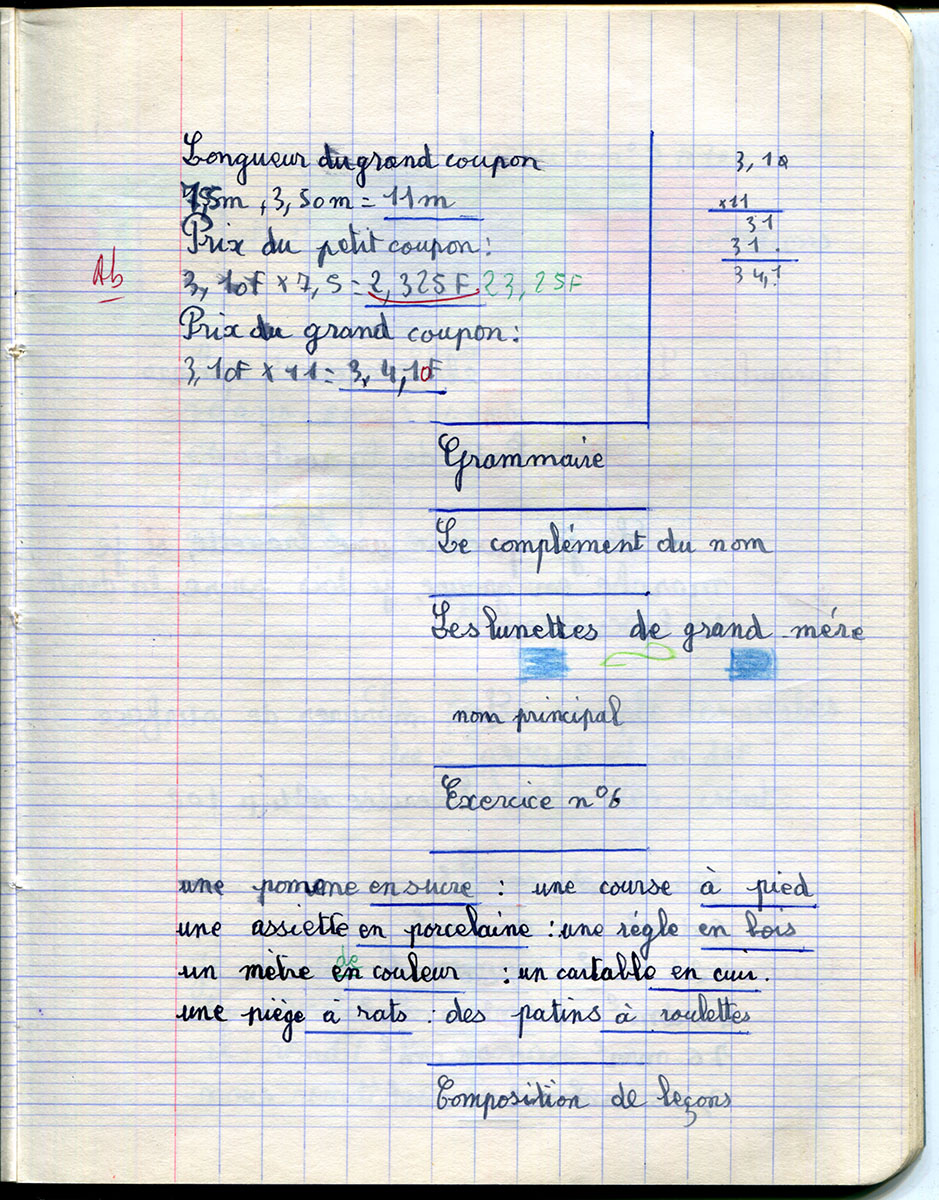 Longueur du grand coupon
7,5m, 3,50m = 11m
Prix du petit coupon:
3,10F × 7,5 = 2,325F 23,25F
Ab
Prix du grand coupon:
3,10F × 11 = 3,4,10F
3,10
×11
31
31.
34,1
Grammaire
Le complément du nom
Les lunettes de grand-mére
nom principal
Exercice n°6
une pomme en sucre : une course à pied
une assiette en porcelaine : une régle en bois
un mètre en de couleur : un cartable en cuir.
une piège à rats : des patins à roulettes
Composition de leçons